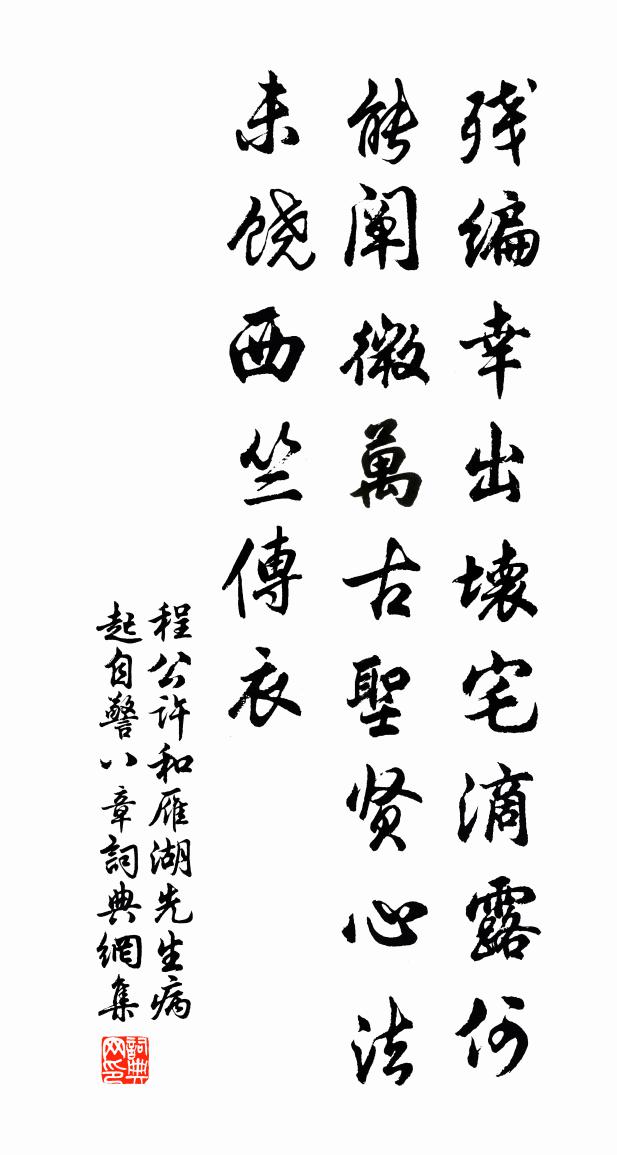 残编幸出壊宅滴露何
能阐微萬古聖贤心法
未饶西竺傳衣
程公许和雁湖先生病
起自警八章詞典網集
詞典
网印